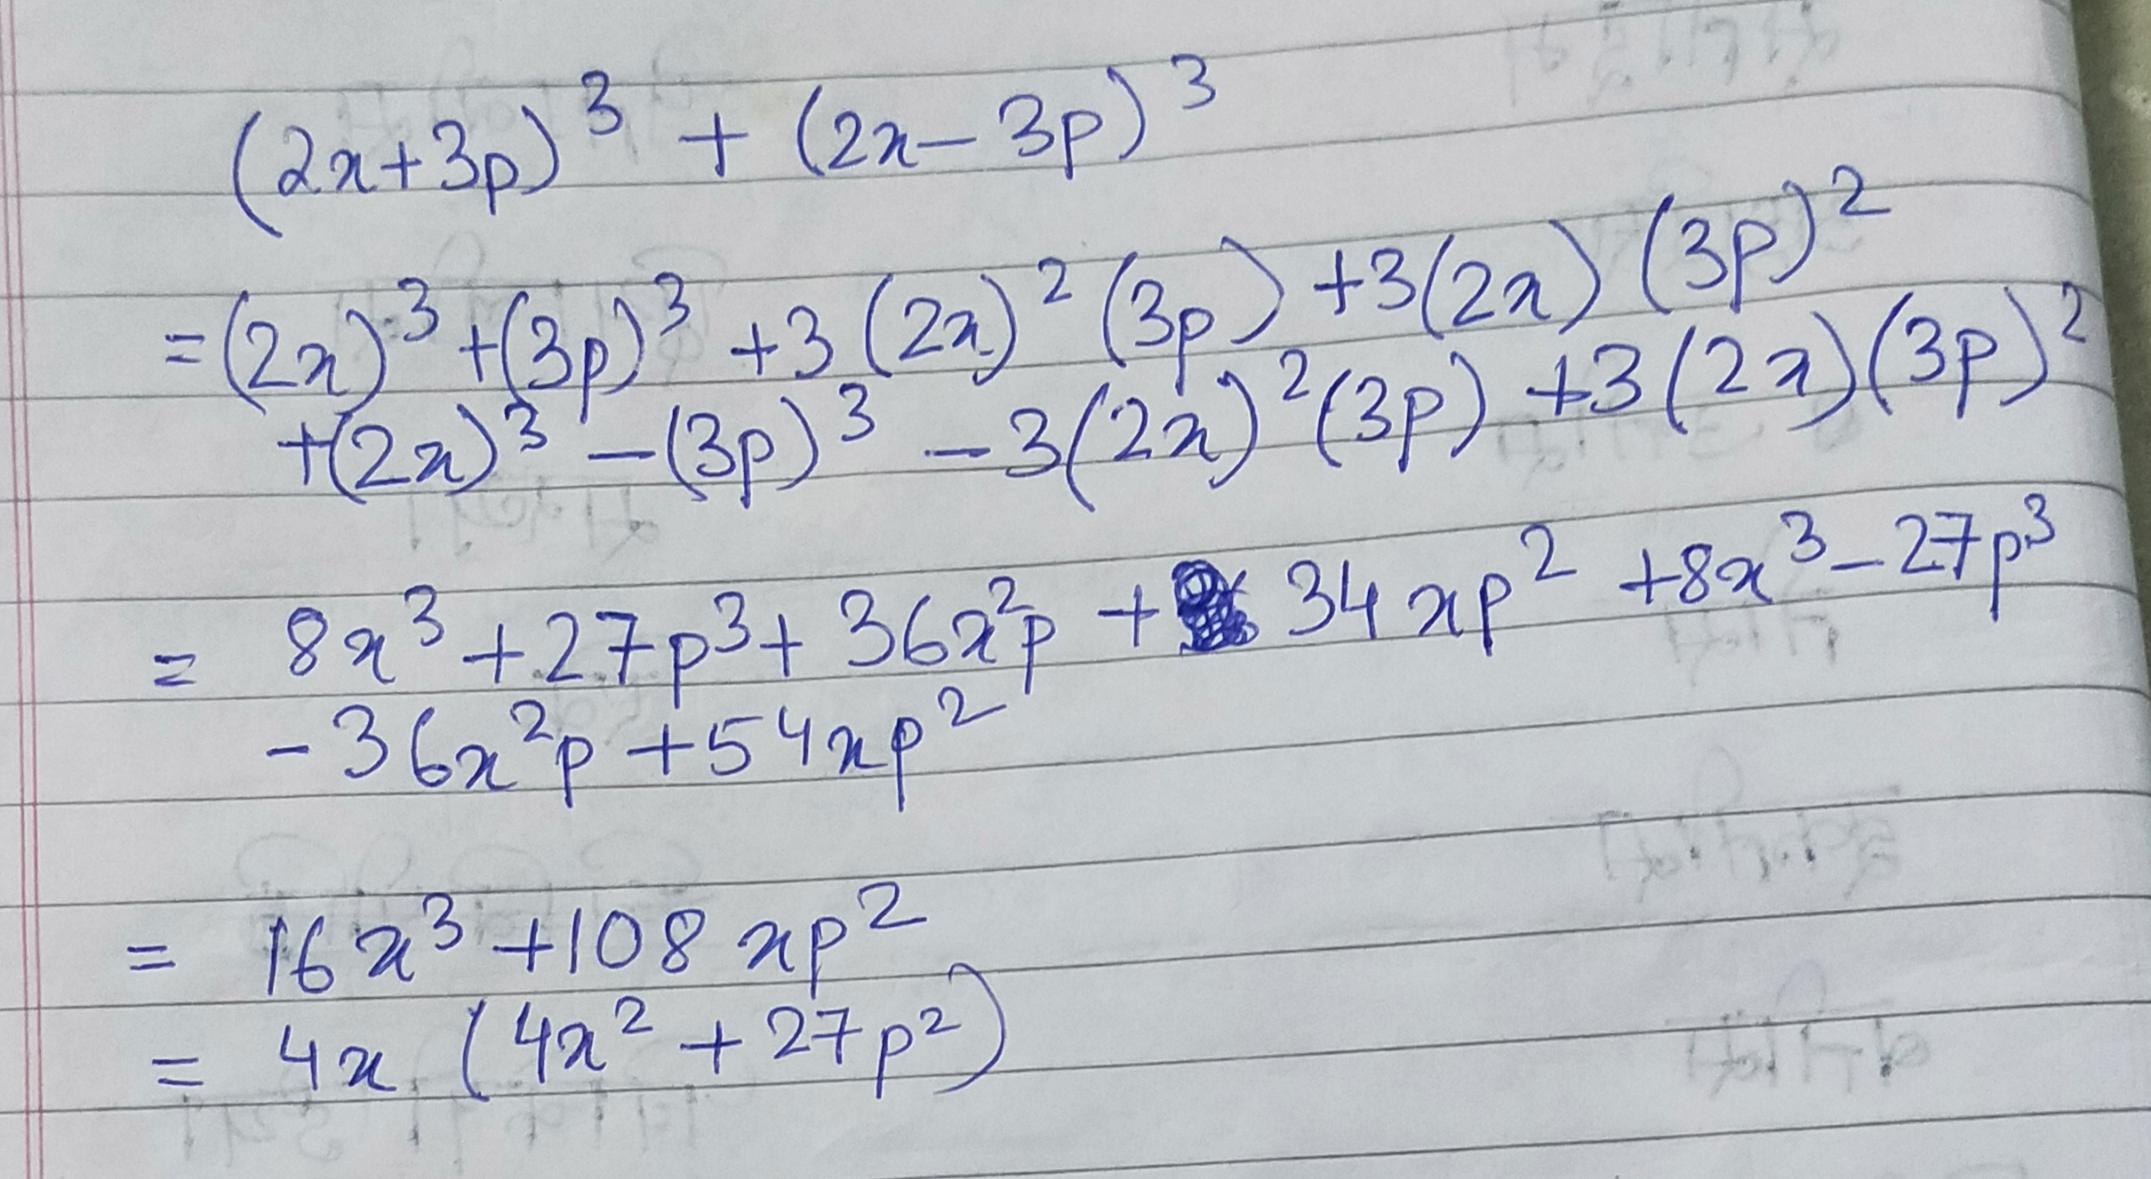 (2x+3p)³ + (2x-3p)³
=(2x)³+(3p)³+3(2x)²(3p)+3(2x)(3p)²
+(2x)³-(3p)³-3(2x)²(3p)+3(2x)(3p)²
= 8x³+27p³+36x²p+34xp²+8x³-27p³
-36x²p+54xp²
= 16x³+108xp²
= 4x(4x²+27p²)